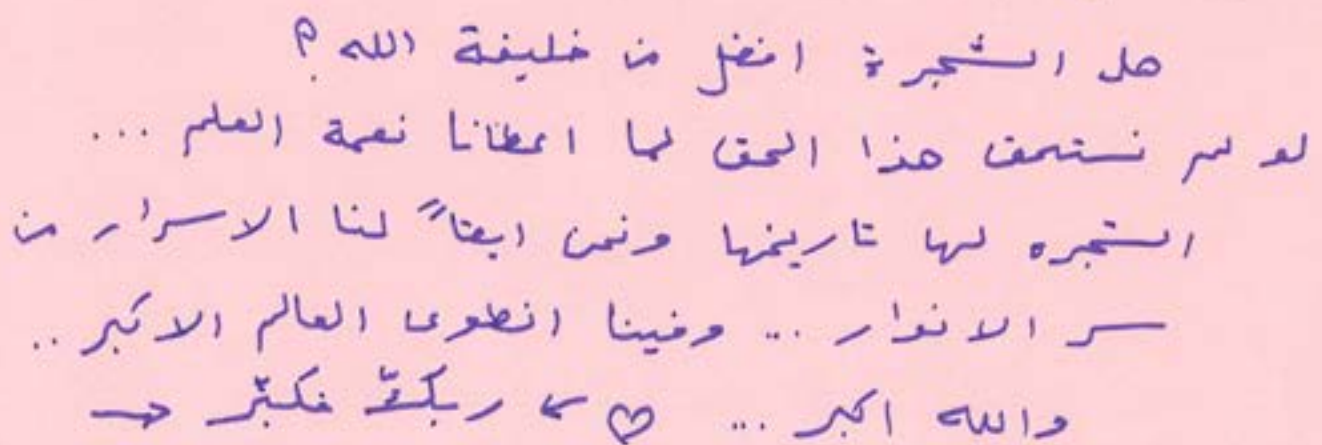 هل الشجرة افضل من خليفة الله؟
لو لم نستحق هذا الحق لما اعطانا نعمة العلم ...
الشجره لها تاريخها ونحن ايضاً لنا الاسرار من
سر الانوار ... وفينا انطوى العالم الاكبر ..
والله اكبر ... ♡ ← ربكَّ فكبّر →